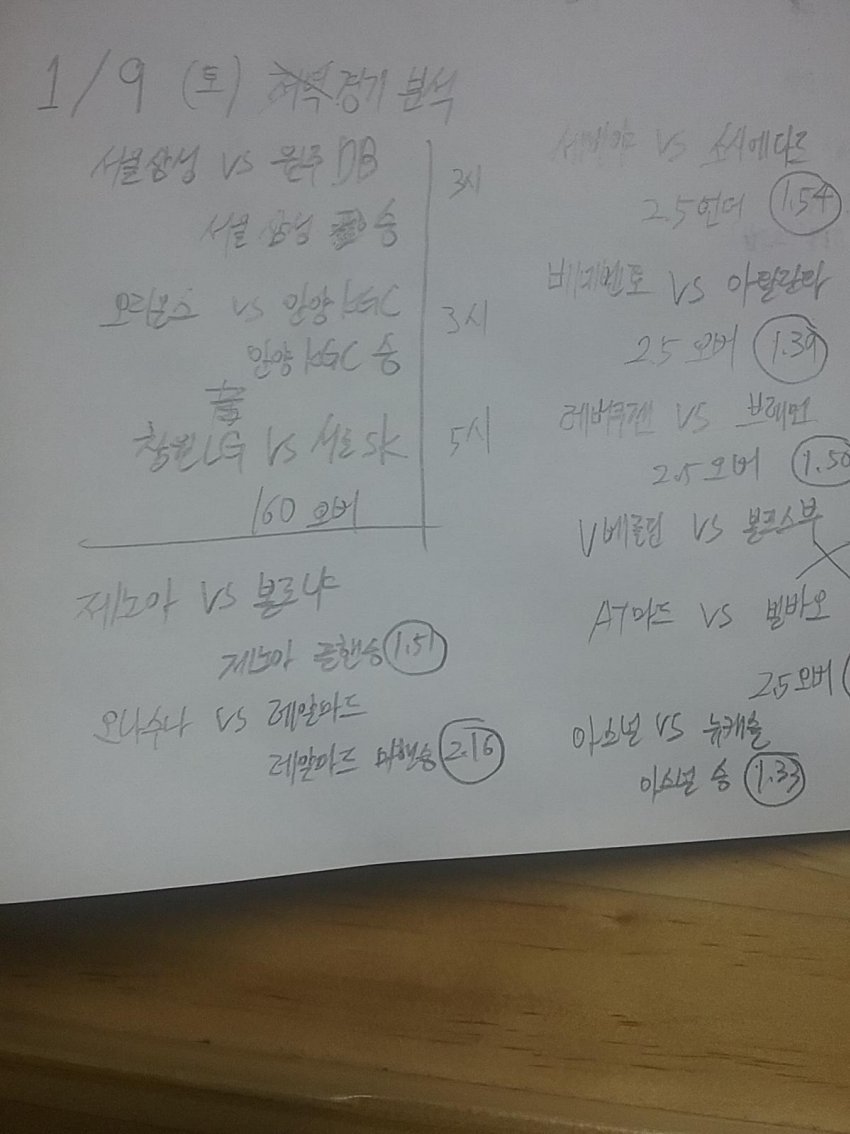 1/9 (토) 경기 분석
서울삼성 VS 원주 DB
3시
서울삼성 승
오리온스 VS 안양 KGC
3시
안양 KGC 승
창원LG VS 서울SK
5시
160 오버
제노아 VS 볼로냐
제노아 플핸승 1.51
오사수나 VS 레알마드
레알마드 마핸승 2.16
세비야 VS 소시에다드
2.5언더 1.54
베네벤토 VS 아탈란타
2.5 오버 1.39
레버쿠젠 VS 브레멘
2.5오버 1.50
V베를린 VS 볼프스부
AT마드 VS 빌바오
2.5오버
아스널 VS 뉴캐슬
아스널 승 1.33